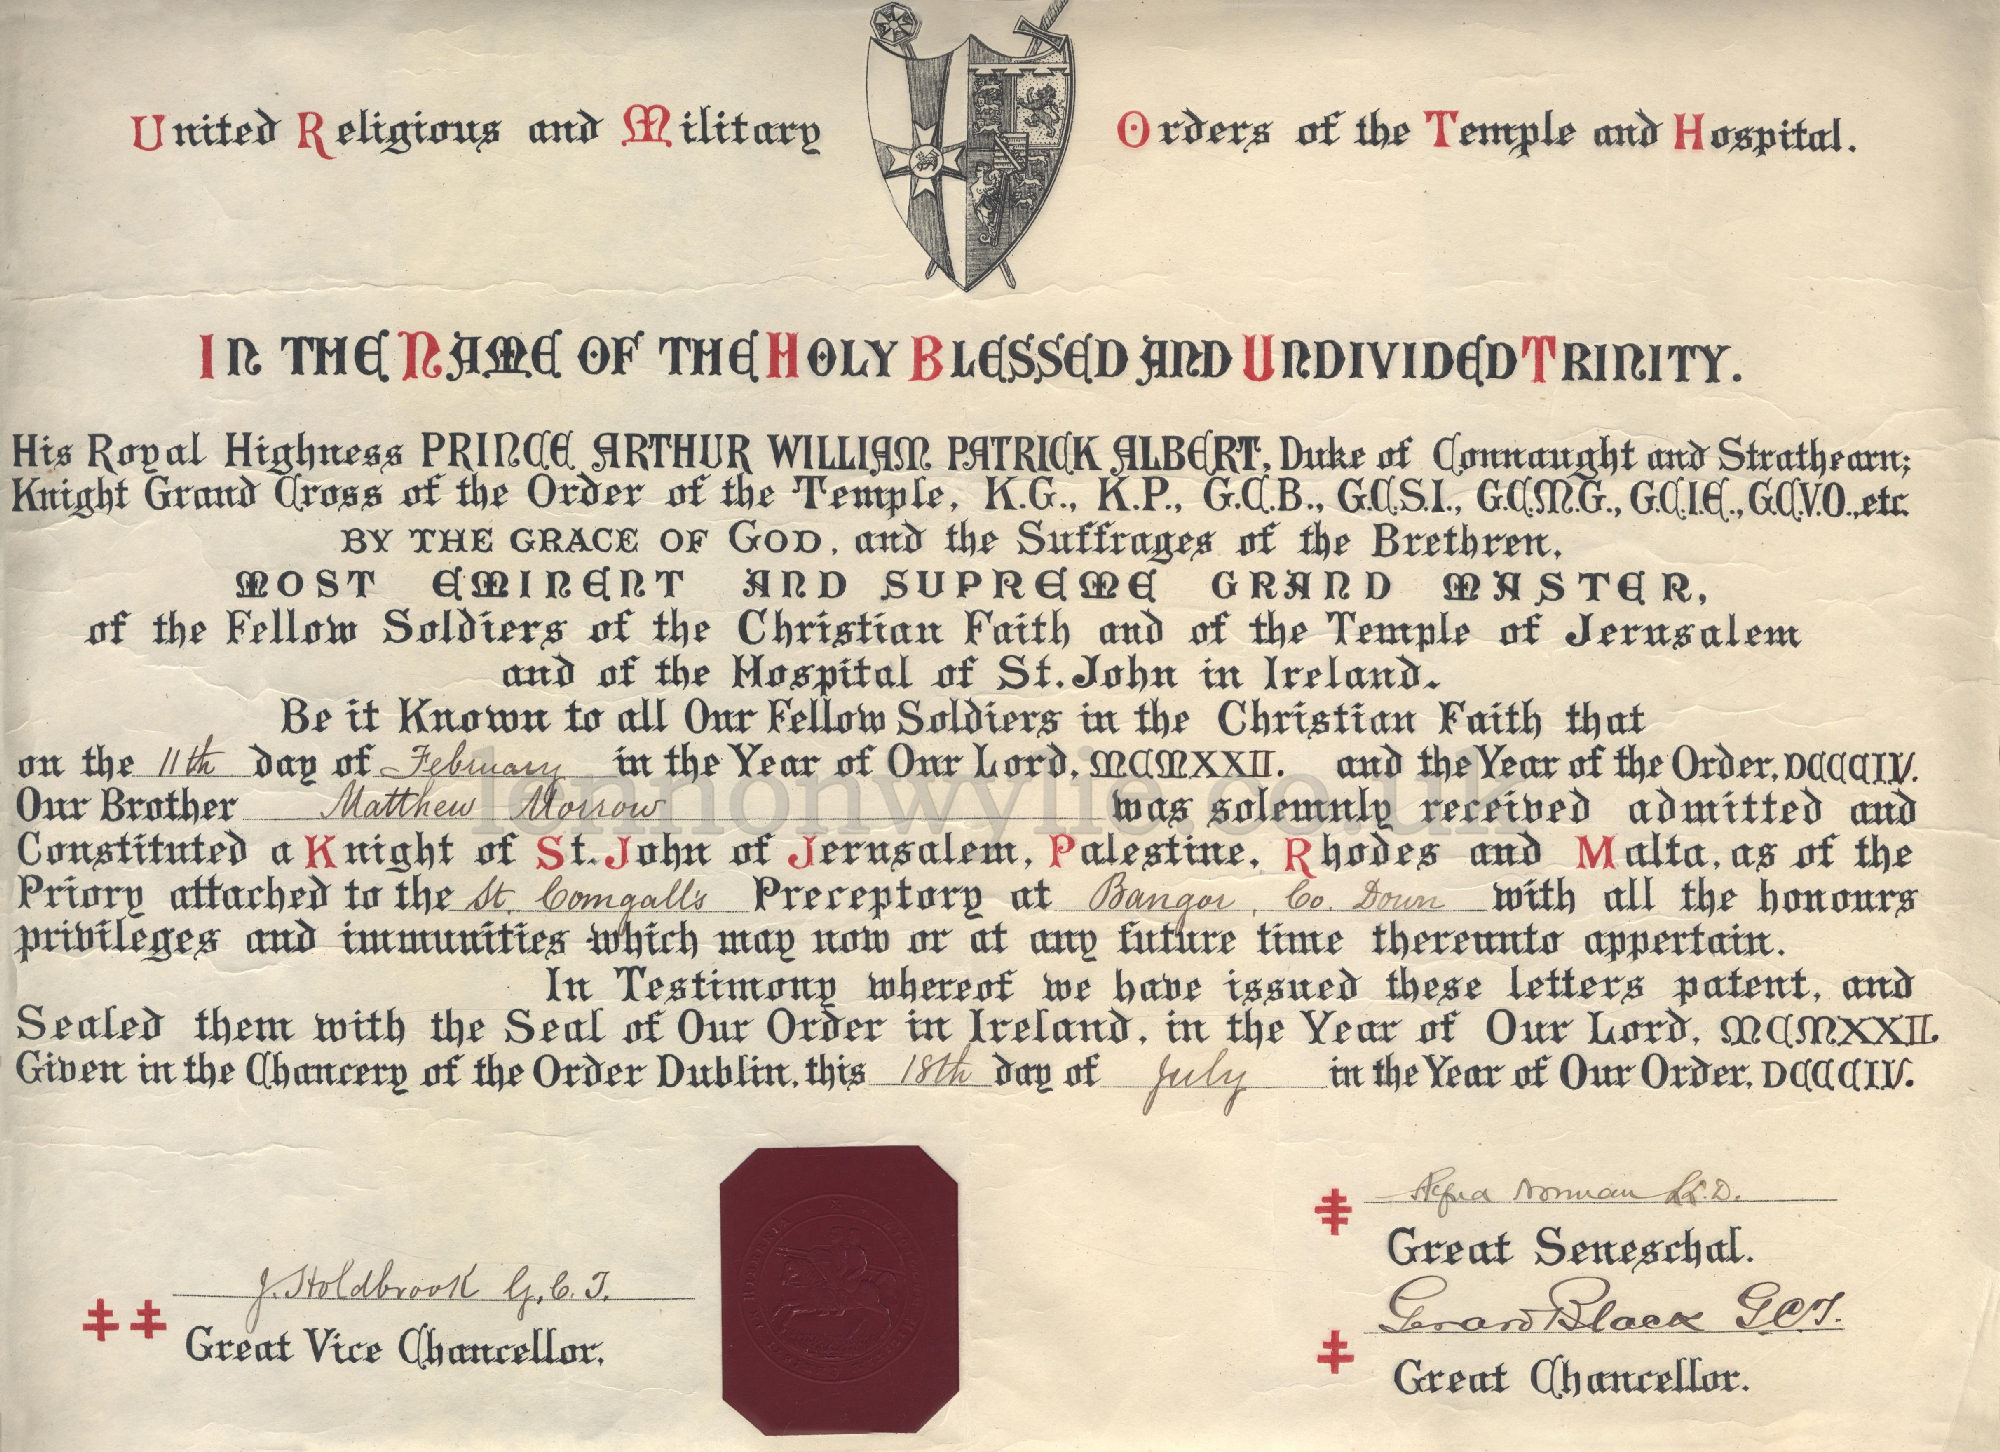 United Religious and Military Orders of the Temple and Hospital.
IN THE NAME OF THE HOLY BLESSED AND UNDIVIDED TRINITY.
His Royal Highness PRINCE ARTHUR WILLIAM PATRICK ALBERT, Duke of Connaught and Strathearn;
Knight Grand Cross of the Order of the Temple, K.G., K.P., G.C.B., G.C.S.I., G.C.M.G., G.C.I.E., G.C.V.O., etc.
BY THE GRACE OF GOD, and the Suffrages of the Brethren,
MOST EMINENT AND SUPREME GRAND MASTER,
of the Fellow Soldiers of the Christian Faith and of the Temple of Jerusalem
and of the Hospital of St. John in Ireland.
Be it Known to all Our Fellow Soldiers in the Christian Faith that
on the 11th day of February in the Year of Our Lord, MCMXXII. and the Year of the Order, DCCCIV.
Our Brother Matthew Morrow was solemnly received admitted and
Constituted a Knight of St. John of Jerusalem, Palestine, Rhodes and Malta, as of the
Priory attached to the St. Comgall's Preceptory at Bangor, Co. Down with all the honours
privileges and immunities which may now or at any future time thereunto appertain.
In Testimony whereof we have issued these letters patent, and
Sealed them with the Seal of Our Order in Ireland, in the Year of Our Lord, MCMXXII.
Given in the Chancery of the Order Dublin, this 18th day of July in the Year of Our Order, DCCCIV.
lennonwylie.co.uk
Norman LL.D.
Great Seneschal.
J. Holdbrook G.C.T.
Great Vice Chancellor.
Gerard Black GCT.
Great Chancellor.